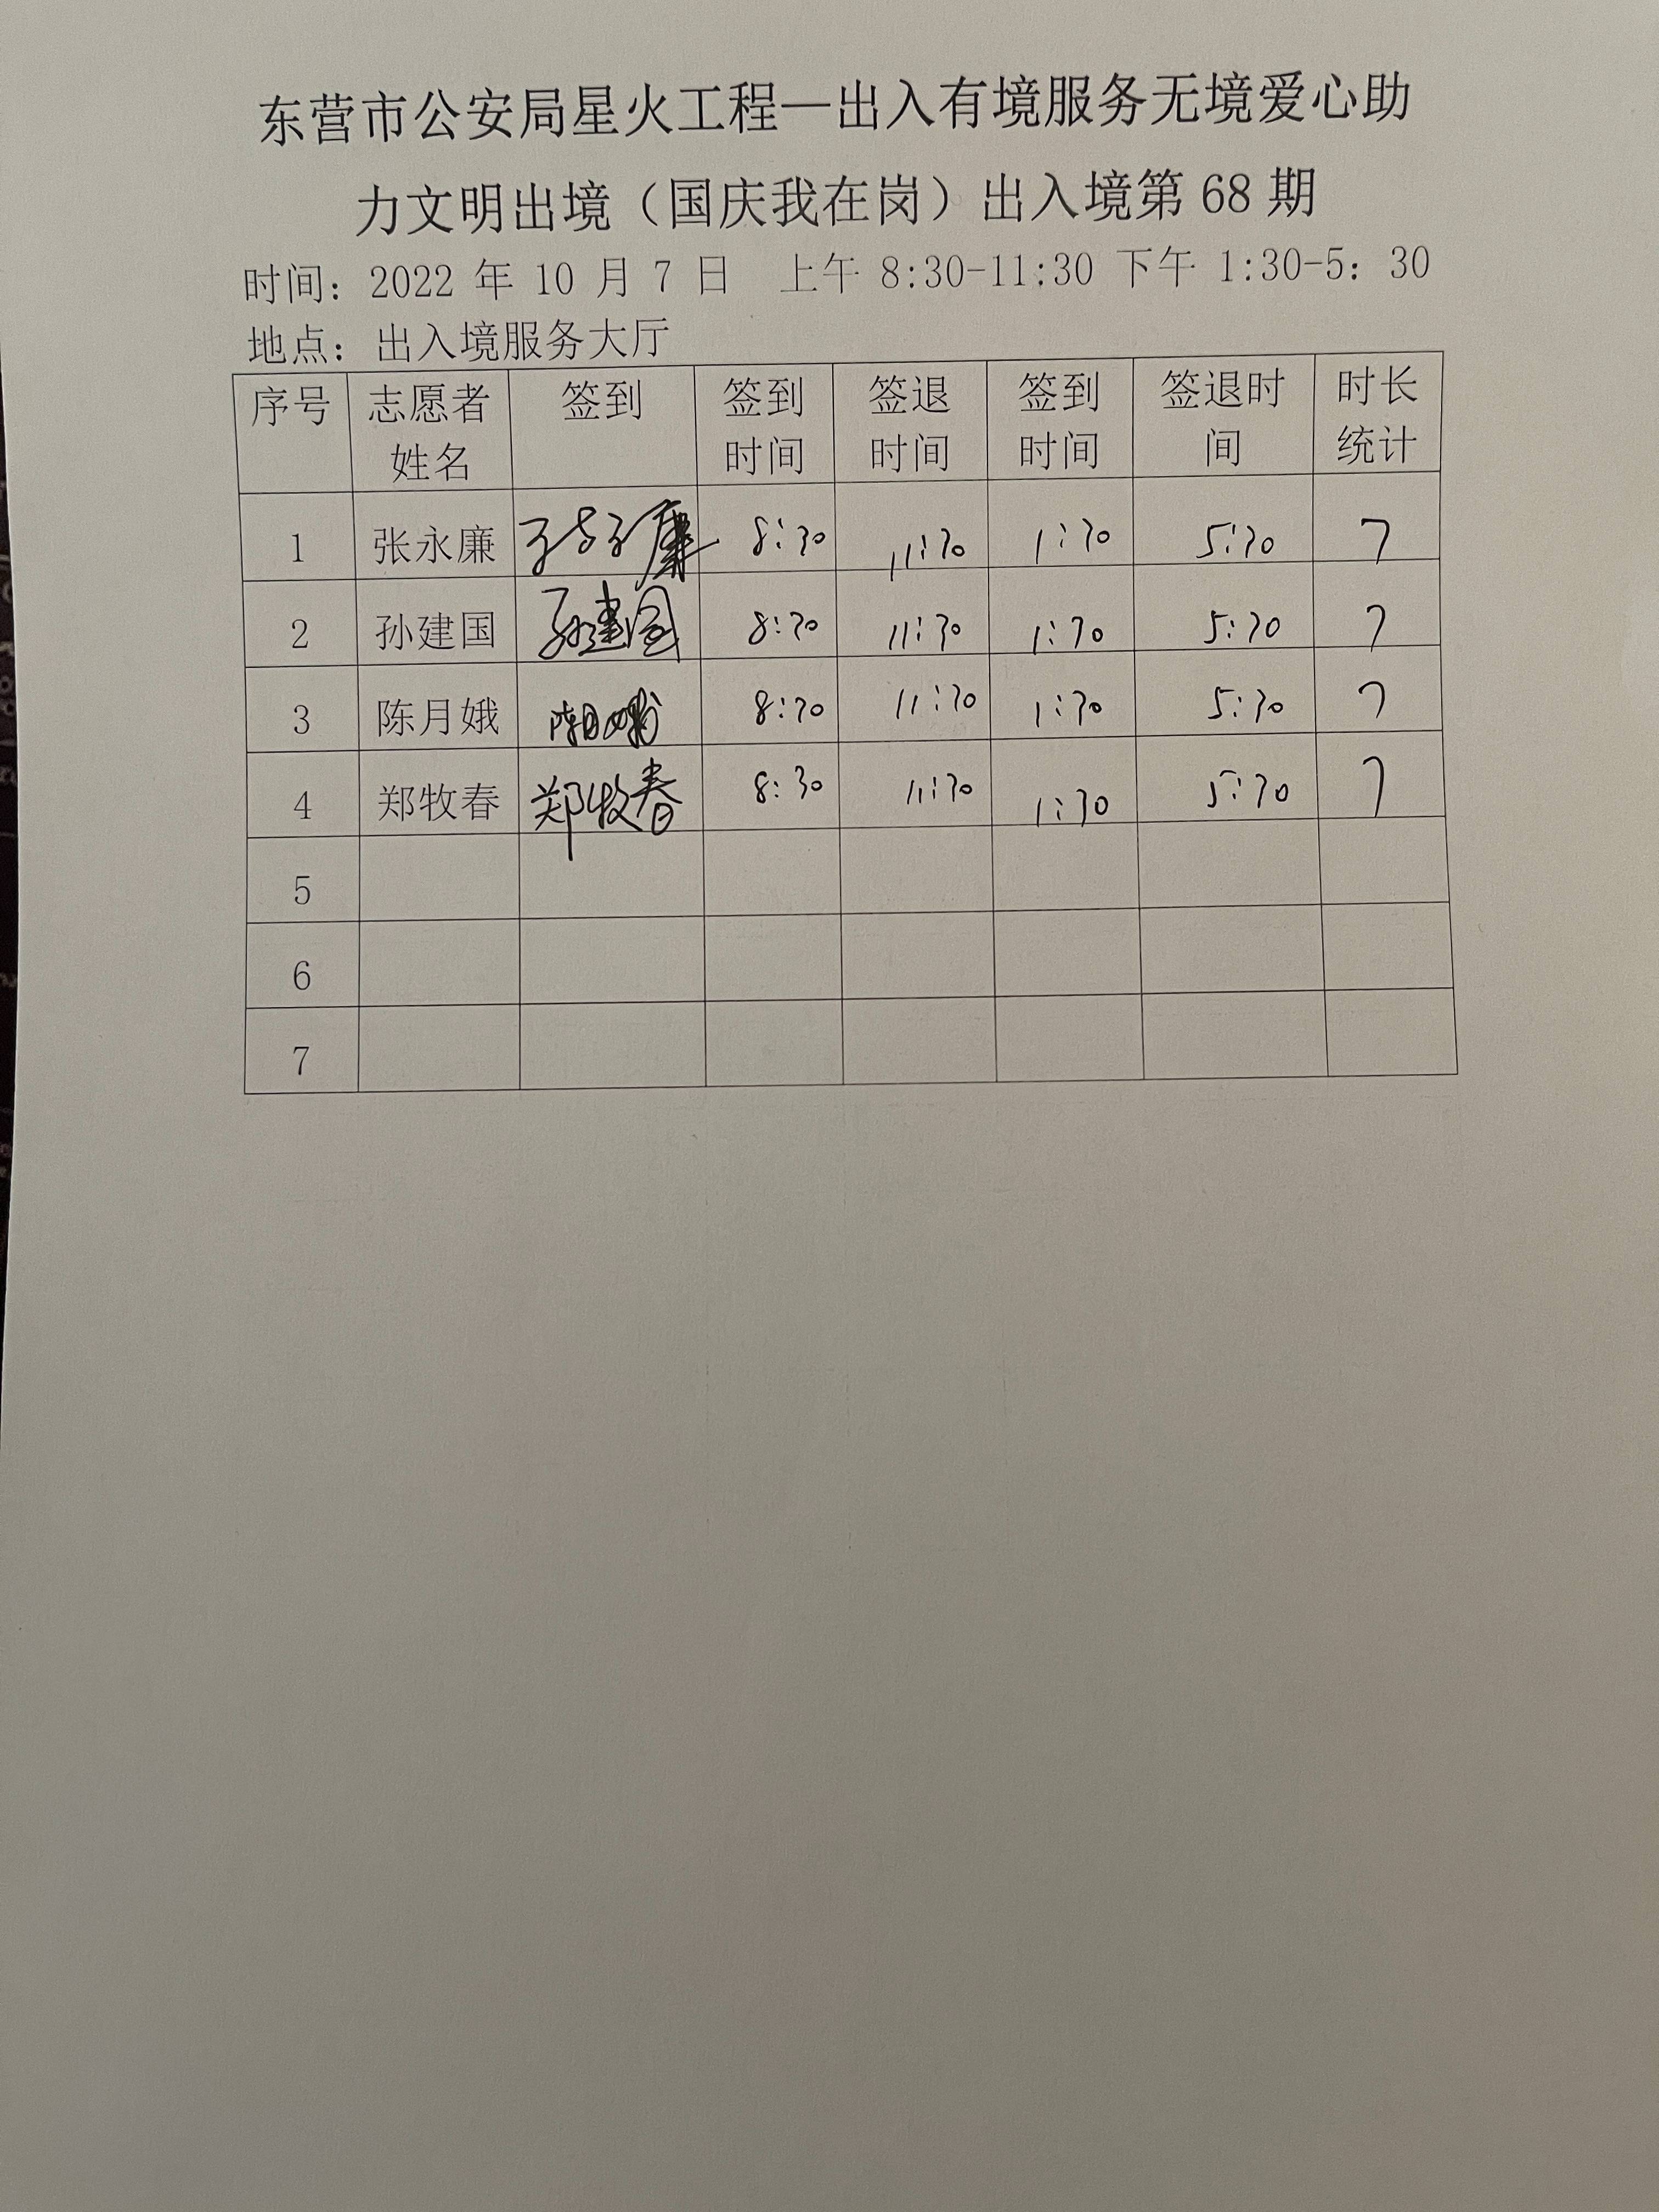 东营市公安局星火工程—出入有境服务无境爱心助
力文明出境（国庆我在岗）出入境第 68 期
时间：2022 年 10 月 7 日 上午 8:30-11:30 下午 1:30-5：30
地点：出入境服务大厅
序号 志愿者姓名 签到 签到时间 签退时间 签到时间 签退时间 时长统计
1 张永廉 张永廉 8:30 11:30 1:30 5:30 7
2 孙建国 孙建国 8:30 11:30 1:30 5:30 7
3 陈月娥 陈月娥 8:30 11:30 1:30 5:30 7
4 郑牧春 郑牧春 8:30 11:30 1:30 5:30 7
5
6
7